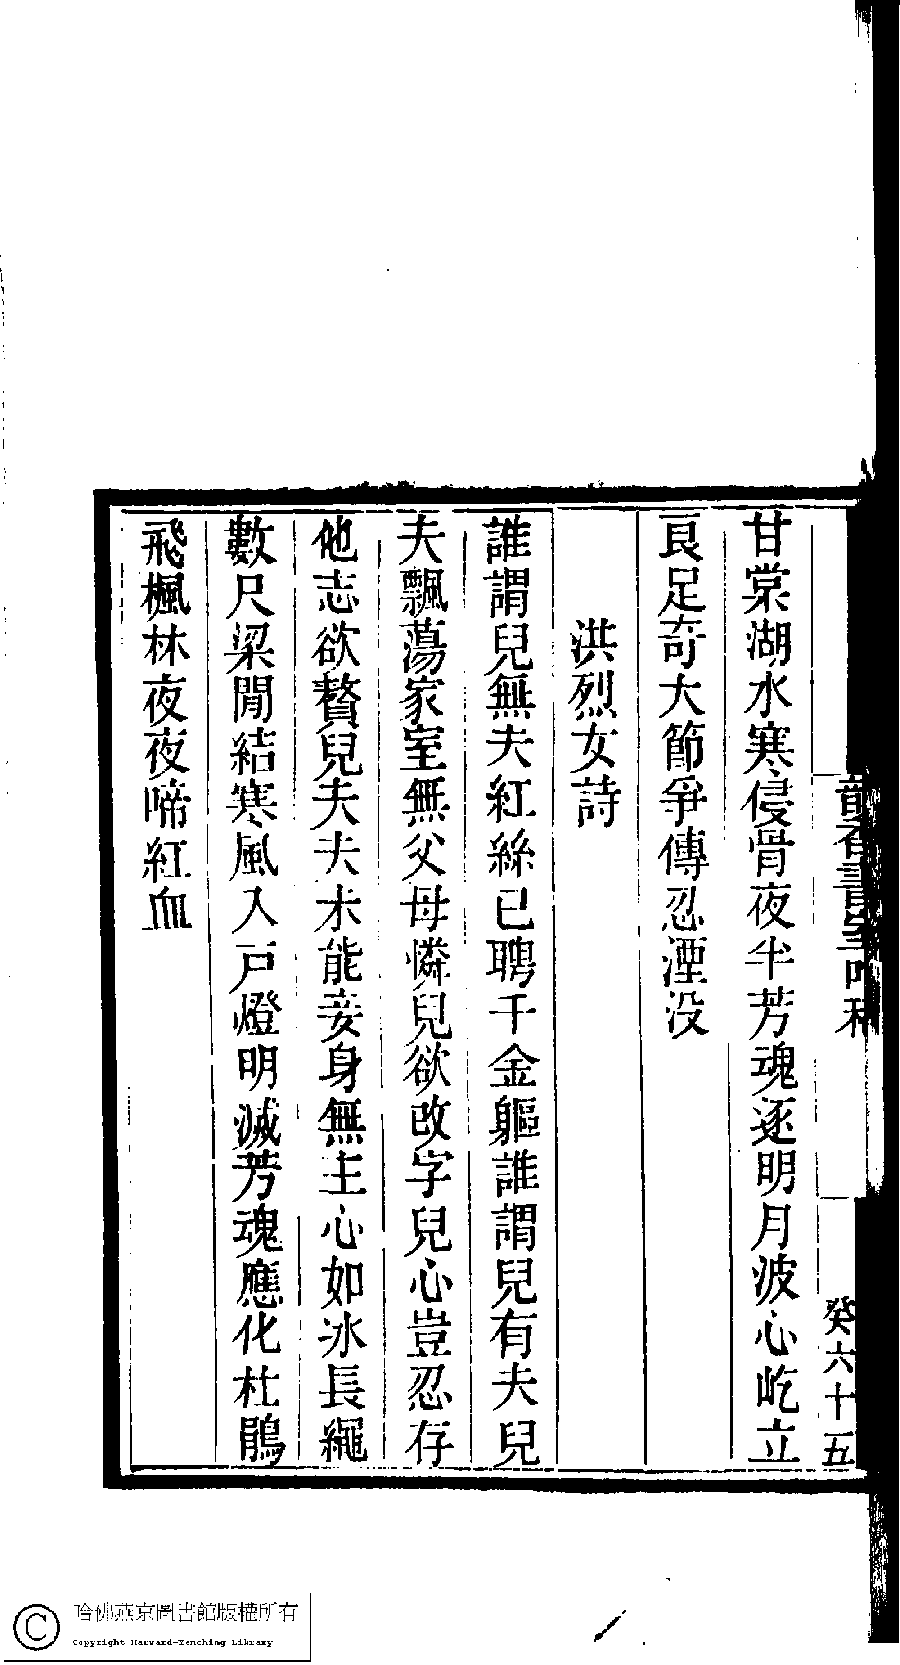 甘棠湖水寒侵骨夜半芳魂逐明月波心屹立
良足奇大節爭傳忍湮没
洪烈女詩
誰謂兒無夫紅絲已聘千金軀誰謂兒有夫兒
夫飄蕩家室無父母憐兒欲改字兒心豈忍存
他志欲贅兒夫夫未能妾身無主心如冰長繩
數尺梁間結寒風入戸燈明滅芳魂應化杜鵑
飛楓林夜夜啼紅血
癸六十五
哈佛燕京圖書館版權所有
Copyright Harvard-Yenching Library